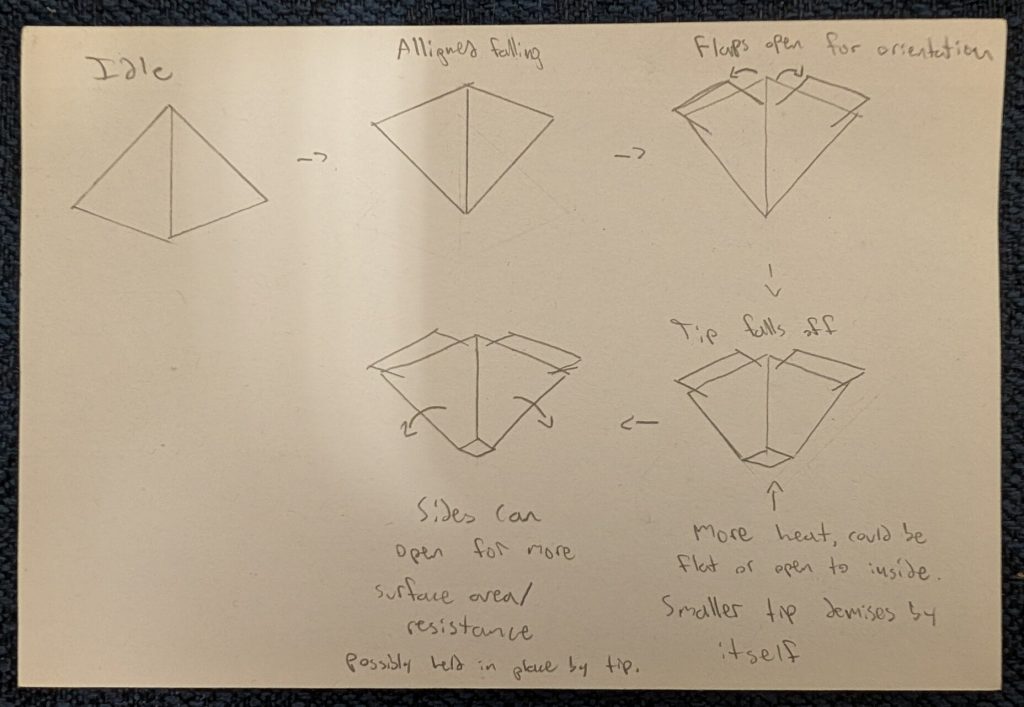 Idle
Alligned falling
Flaps open for orientation
Tip falls off
More heat, could be
flat or open to inside.
Smaller tip demises by
itself
Sides can
open for more
surface area/
resistance
possibly held in place by tip.